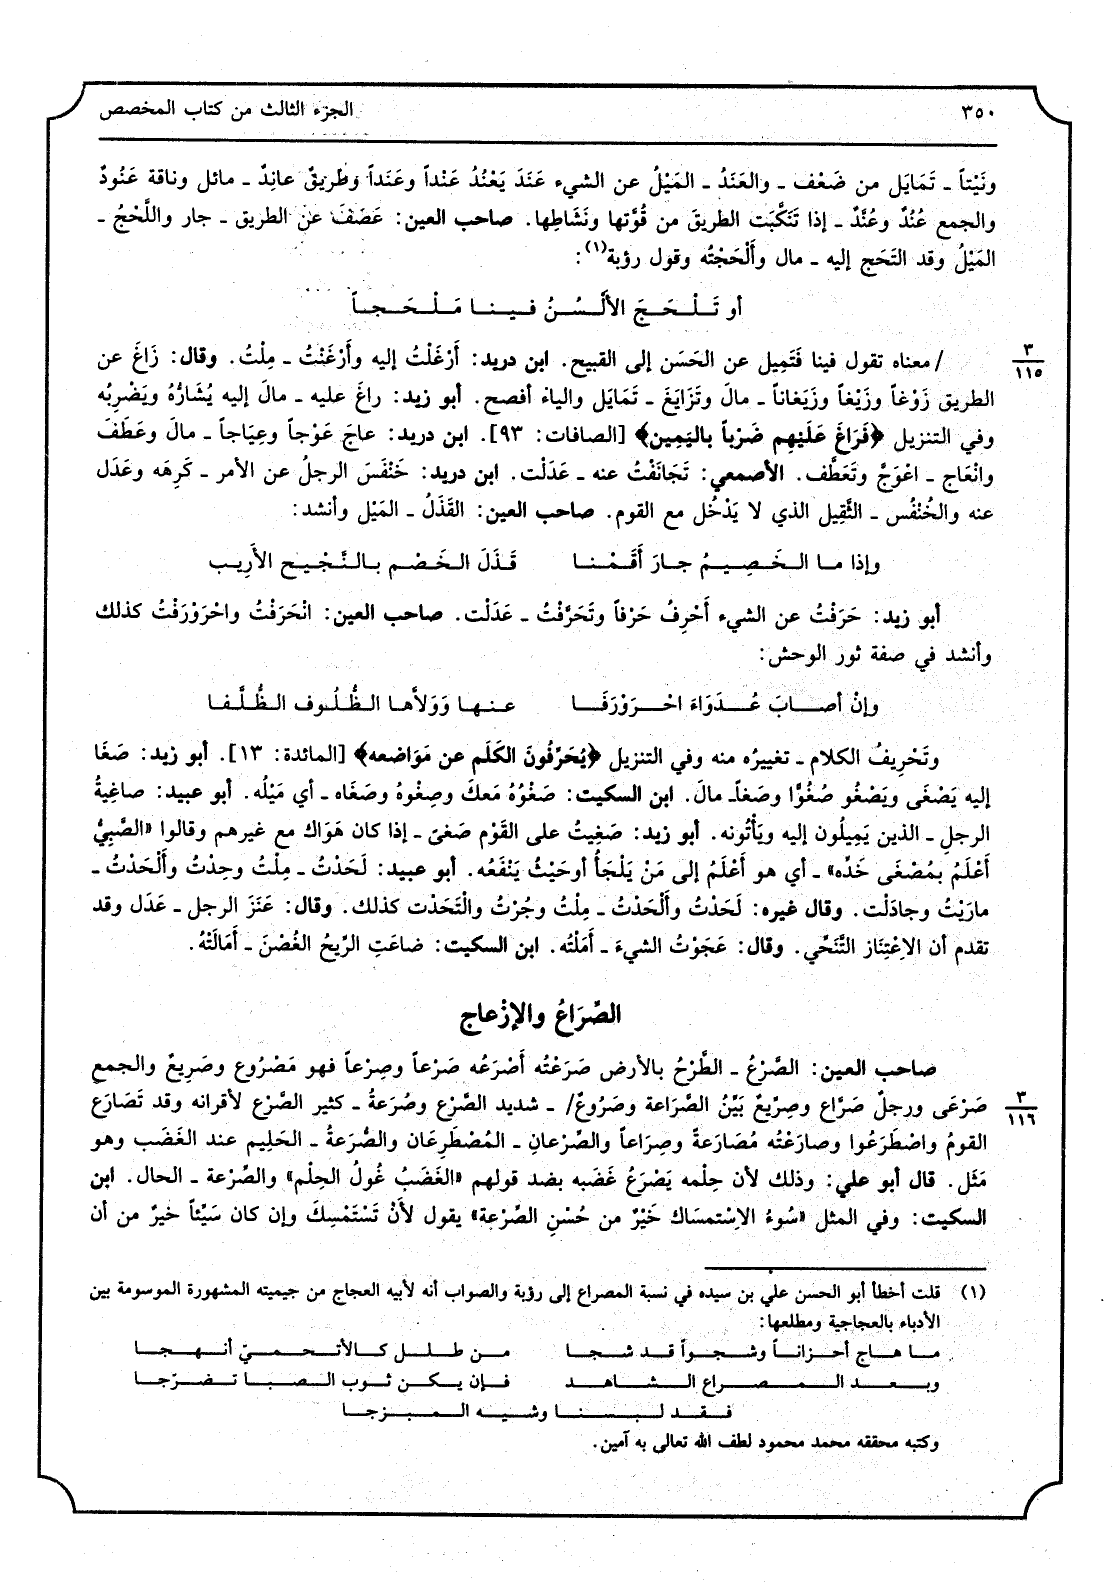 ٣٥٠ الجزء الثالث من كتاب المخصص
ونَيْتاً ـ تَمَايَل من ضَعْف ـ والعَنَدُ ـ المَيْلُ عن الشيء عَنَدَ يَعْنُدُ عَنْداً وعَنَداً وطَرِيقٌ عانِدٌ ـ مائل وناقة عَنُودٌ
والجمع عُنُدٌ وعُنَّدٌ ـ إذا تَنَكَّبَت الطريقَ من قُوَّتها ونَشَاطِها. صاحب العين: عَصَفَ عن الطريق ـ جار واللَّحْجُ ـ
المَيْلُ وقد التَحَج إليه ـ مال وأَلْحَجْتُه وقول رؤبة(١):
أو تَـلْـحَـجَ الأَلْـسُـنُ فـيـنـا مَـلْـحَـجـاً
٣
١١٥
/معناه تقول فينا فَتَمِيل عن الحَسَن إلى القبيح. ابن دريد: أَرْغَلْتُ إليه وأَرْغَنْتُ ـ مِلْتُ. وقال: زَاغَ عن
الطريق زَوْغاً وزَيْغاً وزَيَغاناً ـ مالَ وتَزَايَغَ ـ تَمَايَل والياء أفصح. أبو زيد: راغَ عليه ـ مالَ إليه يُشَارُّهُ ويَضْرِبُه
وفي التنزيل ﴿فَرَاغَ عَلَيْهِم ضَرْباً باليَمِين﴾ [الصافات: ٩٣]. ابن دريد: عاجَ عَوْجاً وعِيَاجاً ـ مالَ وعَطَفَ
وانْعَاج ـ اعْوَجَّ وتَعَطَّف. الأصمعي: تَجَانَفْتُ عنه ـ عَدَلْت. ابن دريد: خَنْفَسَ الرجلُ عن الأمر ـ كَرِهَه وعَدَل
عنه والخُنْفُس ـ الثَّقِيل الذي لا يَدْخُل مع القوم. صاحب العين: القَذَلُ ـ المَيْل وأنشد:
وإذا مـا الـخَـصِـيـمُ جـارَ أَقَـمْـنـا قَـذَلَ الـخَـصْـم بـالـنَّـجِـيـحِ الأَرِيـبِ
أبو زيد: حَرَفْتُ عن الشيء أَحْرِفُ حَرْفاً وتَحَرَّفْتُ ـ عَدَلْت. صاحب العين: انْحَرَفْتُ واحْرَوْرَفْتُ كذلك
وأنشد في صفة ثور الوحش:
وإنْ أصـابَ عُـدَوَاءَ احْـرَوْرَفَـا عـنـهـا وَوَلاَّهـا الـظُّـلُـوف الـظُّـلَّـفـا
وتَحْرِيفُ الكلام ـ تغييرُه منه وفي التنزيل ﴿يُحَرِّفُونَ الكَلَم عن مَوَاضعه﴾ [المائدة: ١٣]. أبو زيد: صَغَا
إليه يَصْغَى ويَصْغُو صُغُوًّا وصَغاً ـ مالَ. ابن السكيت: صَغْوُهُ مَعكَ وصِغْوهُ وصَغَاه ـ أي مَيْلُه. أبو عبيد: صاغِيةُ
الرجلِ ـ الذين يَمِيلُون إليه ويَأْتُونه. أبو زيد: صَغِيتُ على القَوْم صَغىً ـ إذا كان هَوَاك مع غيرهم وقالوا «الصَّبِيُّ
أَعْلَمُ بمُصْغَى خَدِّه» ـ أي هو أَعْلَمُ إلى مَنْ يَلْجَأُ أوحَيْثُ يَنْفَعُه. أبو عبيد: لَحَدْتُ ـ مِلْتُ وحِدْتُ وأَلْحَدْتُ ـ
مارَيْتُ وجادَلْت. وقال غيره: لَحَدْتُ وأَلْحَدْتُ ـ مِلْتُ وجُرْتُ والْتَحَدْت كذلك. وقال: عَنَزَ الرجل ـ عَدَل وقد
تقدم أن الاِعْتِنَاز التَّنَحِّي. وقال: عَجَوْتُ الشيءَ ـ أَمَلْتُه. ابن السكيت: ضاعَتِ الرِّيحُ الغُصْنَ ـ أَمَالَتْهُ.
الصِّرَاعُ والإزْعاج
صاحب العين: الصَّرْعُ ـ الطَّرْحُ بالأرض صَرَعْتُه أَصْرَعُه صَرْعاً وصِرْعاً فهو مَصْرُوع وصَرِيعٌ والجمع
٣
١١٦
صَرْعَى ورجلٌ صَرَّاع وصِرِّيعٌ بَيِّنُ الصَّرَاعة وصَرُوعٌ/ ـ شديد الصَّرْع وصُرَعةُ ـ كثير الصَّرْع لأقرانه وقد تَصَارَع
القومُ واصْطَرَعُوا وصارَعْتُه مُصَارَعةً وصِرَاعاً والصِّرْعانِ ـ المُصْطَرِعَان والصُّرَعةُ ـ الحَلِيم عند الغَضَب وهو
مَثَل. قال أبو علي: وذلك لأن حِلْمه يَصْرَعُ غَضَبه بضد قولهم «الغَضَبُ غُولُ الحِلْم» والصِّرْعة ـ الحال. ابن
السكيت: وفي المثل «سُوءُ الاِسْتمسَاك خَيْرٌ من حُسْنِ الصِّرْعة» يقول لأَنْ تَسْتَمْسِكَ وإن كان سَيِّئاً خيرٌ من أن
(١) قلت أخطأ أبو الحسن علي بن سيده في نسبة المصراع إلى رؤبة والصواب أنه لأبيه العجاج من جيميته المشهورة الموسومة بين
الأدباء بالعجاجية ومطلعها:
مـا هـاج أحـزانـاً وشـجـواً قـد شـجـا مـن طـلـل كـالأتـحـمـيّ أنـهـجـا
وبـعـد الـمـصـراع الـشـاهـد فـإن يـكـن ثـوب الـصـبـا تـضـرّجـا
فـقـد لـبـسـنـا وشـيـه الـمـبـزجـا
وكتبه محققه محمد محمود لطف الله تعالى به آمين.